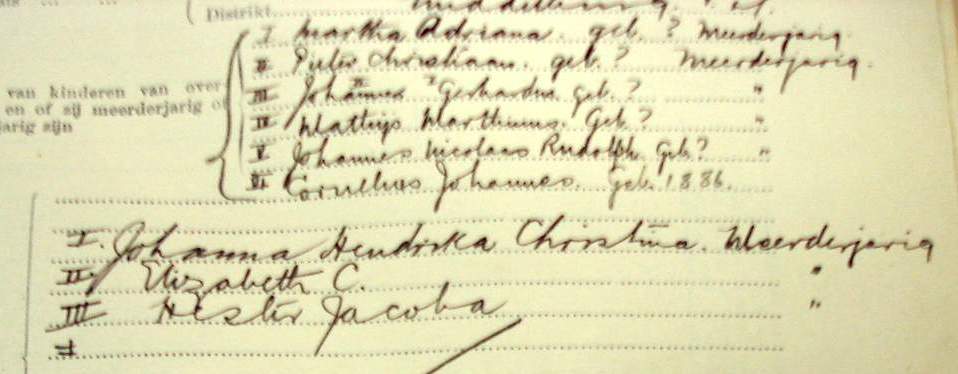 Distrikt
I Martha Adriana. geb. ? Meerderjarig.
II Pieter Christiaan. geb. ? Meerderjarig.
van kinderen van over
III Johannes Gerhardus geb. ? "
en of sij meerderjarig of
IV Mattijs Marthinus. Geb ? "
jarig sijn
V Johannes Nicolaas Rudolph Geb ? "
VI Cornelius Johannes. Geb. 1886.
I. Johanna Hendrika Christina. Meerderjarig
II. Elizabeth C. "
III Hester Jacoba "